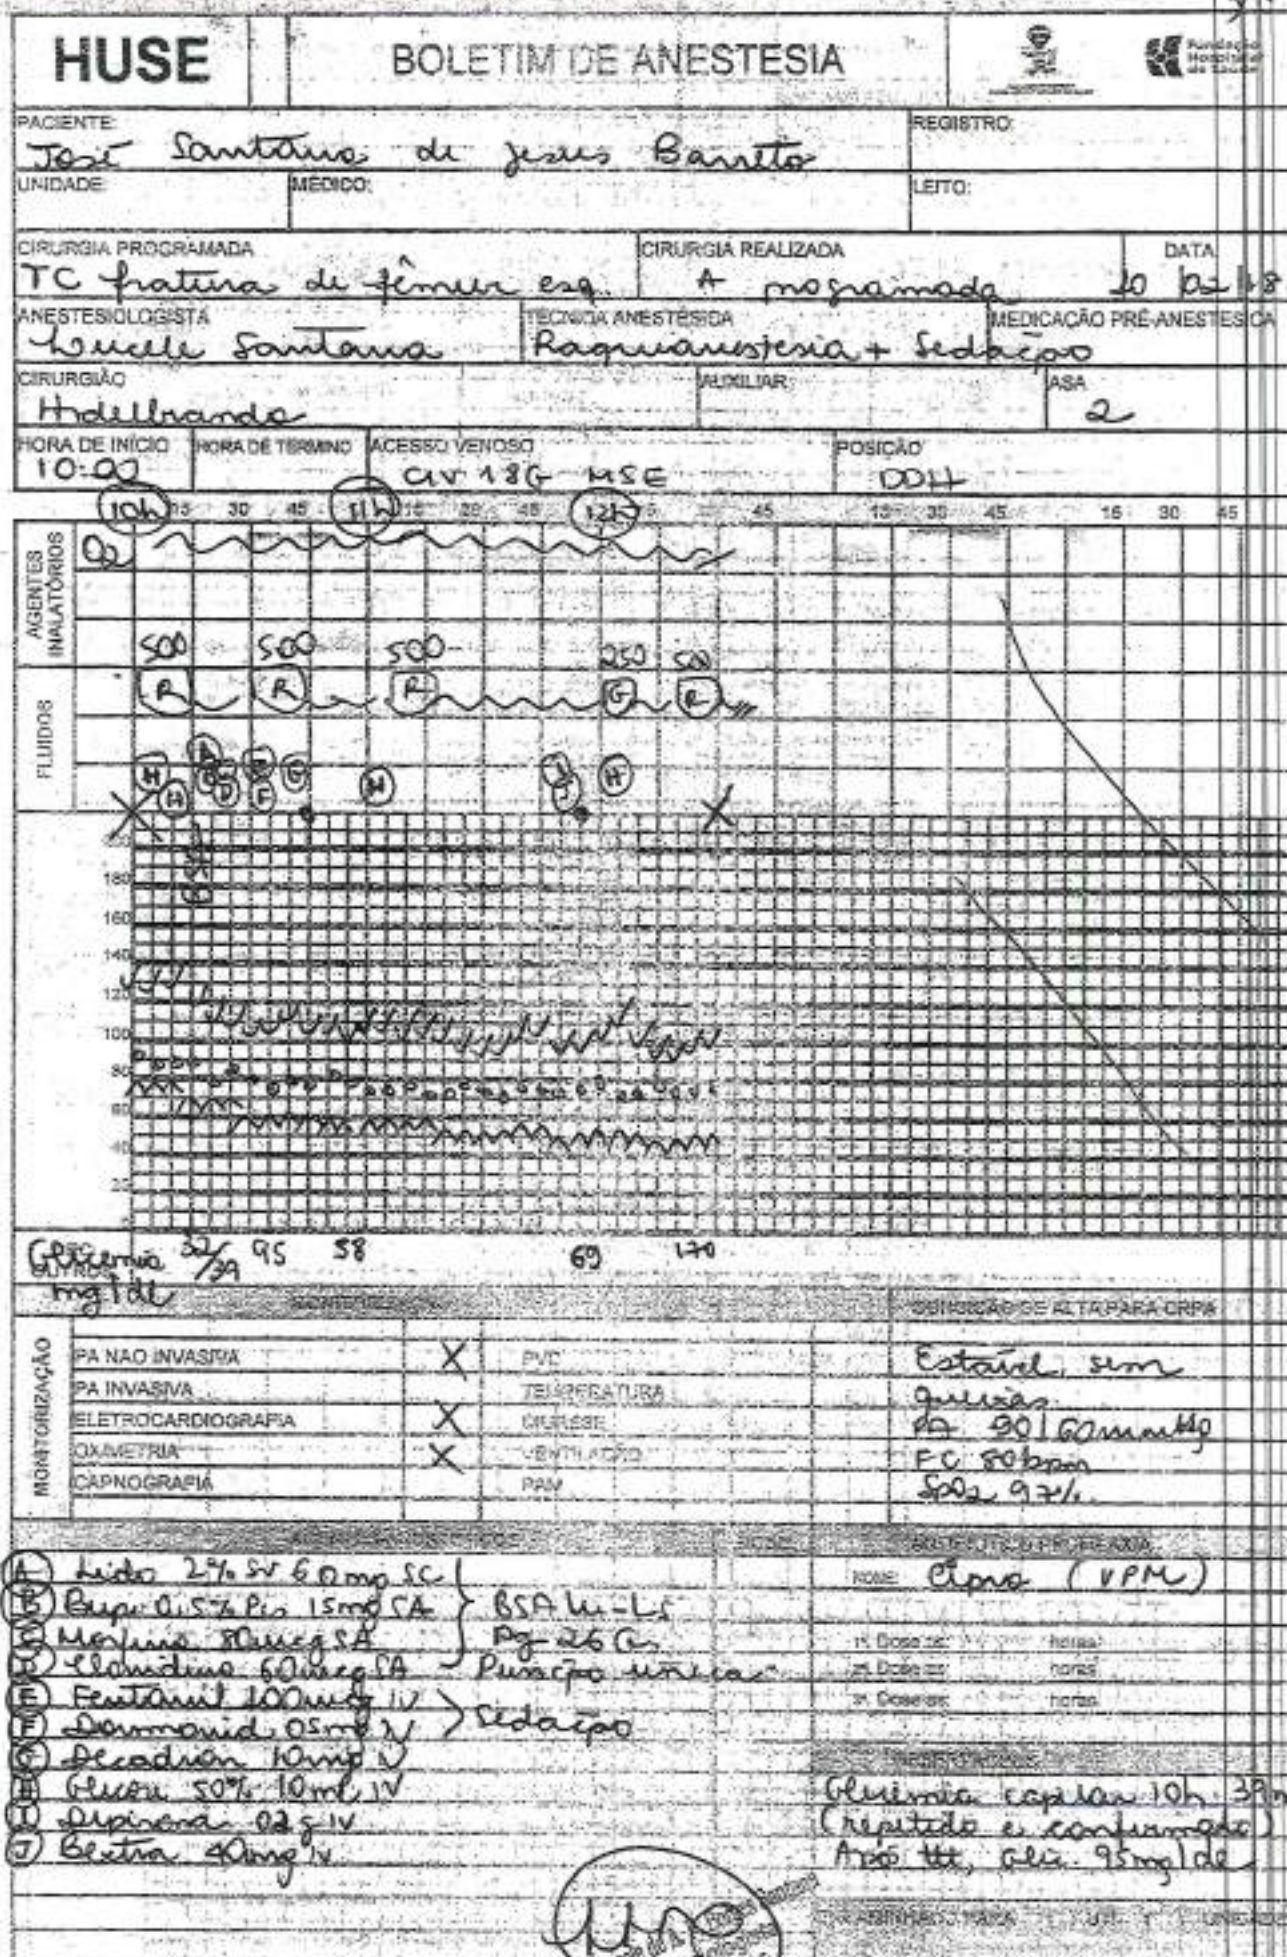 HUSE
BOLETIM DE ANESTESIA
Fundação
Hospitalar
de Saúde
PACIENTE:
José Santana de Jesus Barreto
REGISTRO:
UNIDADE:
MÉDICO:
LEITO:
CIRURGIA PROGRAMADA
TC fratura de fêmur esq.
CIRURGIA REALIZADA
A programada
DATA
10 02 18
ANESTESIOLOGISTA
Santana
TÉCNICA ANESTÉSICA
Raquianestesia + Sedação
MEDICAÇÃO PRÉ-ANESTESICA
CIRURGIÃO
Hidelbrando
AUXILIAR:
ASA
2
HORA DE INÍCIO
10:00
HORA DE TÉRMINO
ACESSO VENOSO
CIV 18G MSE
POSIÇÃO
DDH
10h 15 30 45 11h 15 30 45 12h 15 45 15 30 45 15 30 45
AGENTES
INALATÓRIOS
O2
500 500 500 250 500
FLUIDOS
R R R G R
H H A D F G H J H
180
160
140
120
100
80
60
40
20
Glicemia
mg/dL
OUTROS
32/39 95 58 69 170
CONDIÇÃO DE ALTA PARA CRPA
MONITORIZAÇÃO
PA NAO INVASIVA X PVC
PA INVASIVA TEMPERATURA
ELETROCARDIOGRAFIA X DIURESE
OXIMETRIA X VENTILAÇÃO
CAPNOGRAFIA PAM
Estável, sem
queixas.
PA 90/60mmHg
FC 80bpm
SpO2 97%.
A Lido 2% SV 60mg SC
B Bupi 0,5% Ps 15mg SA
C Morfina 80mcg SA
D Clonidina 60mcg SA - Punção única
E Fentanil 100mcg IV
F Dormonid 05mg IV
Sedação
G Decadron 10mg IV
H Glicose 50% 10ml IV
I Dipirona 02g IV
J Bextra 40mg IV
NOME: Cipro (VPM)
1ª Dose às: horas
2ª Dose às: horas
3ª Dose às: horas
Glicemia capilar 10h 39m
(repetido e confirmado)
Após ttt, glic. 95mg/dL